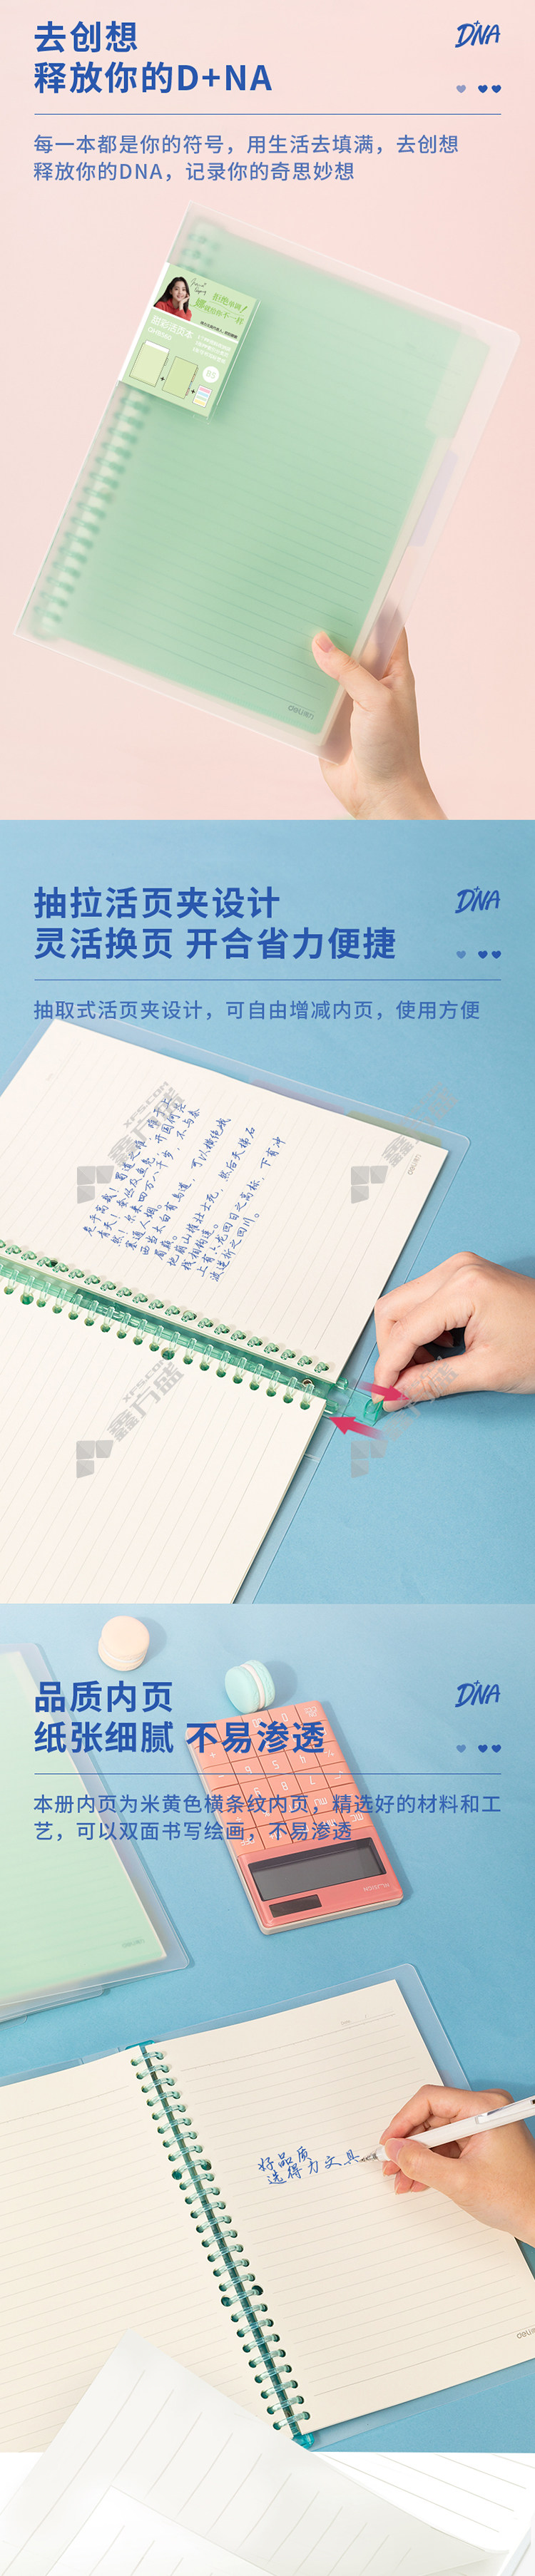 去创想
释放你的D+NA
DNA
每一本都是你的符号，用生活去填满，去创想
释放你的DNA，记录你的奇思妙想
拒绝标牌！
娜就给你不一样
炫彩活页本
deli得力
抽拉活页夹设计
灵活换页 开合省力便捷
DNA
抽取式活页夹设计，可自由增减内页，使用方便
XFS.COM
鑫方盛
XFS.COM
鑫方盛
品质内页
纸张细腻 不易渗透
DNA
本册内页为米黄色横条纹内页，精选好的材料和工
艺，可以双面书写绘画，不易渗透
好品质
选得力文具